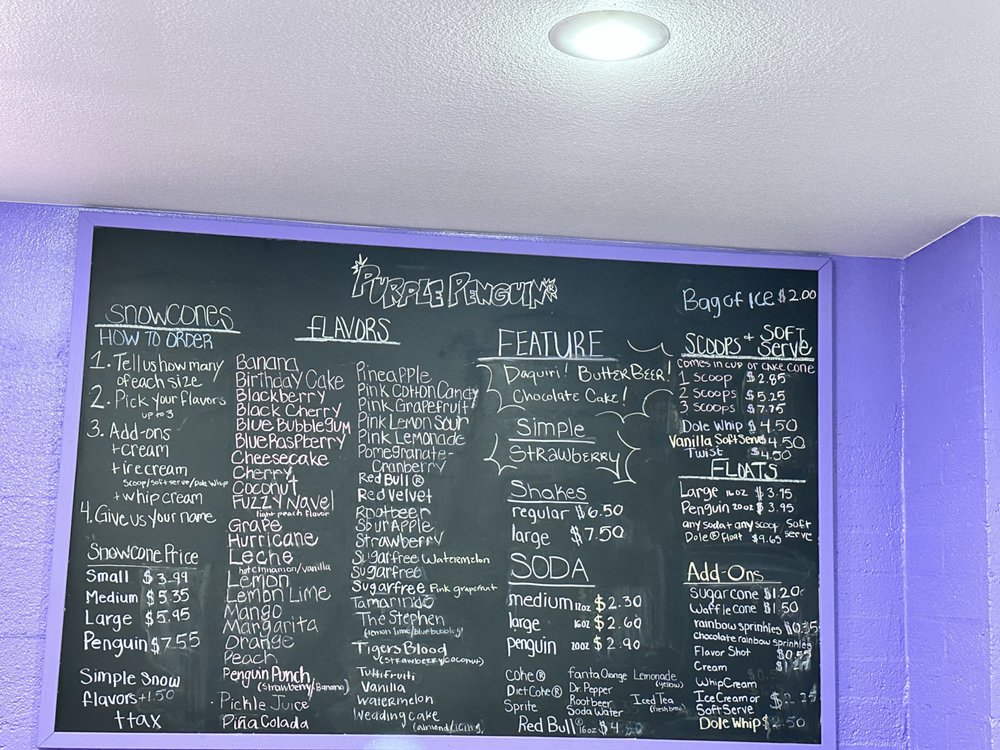 PURPLE PENGUIN
Bag of ICE $2.00
SNOWCONES
HOW TO ORDER
1. Tell us how many
of each size
2. Pick your flavors
up to 3
3. Add-ons
+cream
+ice cream
Scoop/soft serve/Dole Whip
+whip cream
4. Give us your name
Snowcone Price
Small $3.99
Medium $5.35
Large $5.95
Penguin $7.55
Simple Snow
flavors +1.50
+tax
FLAVORS
Banana
Birthday Cake
Blackberry
Black Cherry
Blue Bubblegum
Blue Raspberry
Cheesecake
Cherry
Coconut
Fuzzy Navel
light peach flavor
Grape
Hurricane
Leche
hot cinnamon/vanilla
Lemon
Lemon Lime
Mango
Margarita
Orange
Peach
Penguin Punch
(Strawberry/Banana)
Pickle Juice
Piña Colada
Pineapple
Pink Cotton Candy
Pink Grapefruit
Pink Lemon Sour
Pink Lemonade
Pomegranate-
Cranberry
Red Bull®
Red Velvet
Rootbeer
Sour Apple
Strawberry
Sugarfree Watermelon
Sugarfree
Sugarfree Pink grapefruit
Tamarindo
The Stephen
(lemon lime/blue bubbleg)
Tigers Blood
(Strawberry/Coconut)
Tuttifruti
Vanilla
Watermelon
Wedding Cake
(Almond/icing)
FEATURE
Daquiri! ButterBEER!
Chocolate Cake!
Simple
STRAWBERRY
Shakes
regular $6.50
large $7.50
SODA
medium 12oz $2.30
large 16oz $2.60
penguin 20oz $2.90
Coke®
Diet Coke®
Sprite
fanta Orange
Dr. Pepper
Rootbeer
Soda Water
Lemonade
(yellow)
Iced Tea
(fresh brew)
Red Bull® 16oz $4.50
SCOOPS + SOFT Serve
comes in cup or cake cone
1 Scoop $2.85
2 Scoops $5.25
3 Scoops $7.75
Dole Whip $4.50
Vanilla Soft Serve 4.50
Twist $4.50
FLOATS
Large 16oz $3.95
Penguin 20oz $3.95
any soda + any scoop, soft serve
Dole® Float $9.65
Add-Ons
Sugar cone $1.20
Waffle cone $1.50
rainbow sprinkles $0.35
Chocolate rainbow sprinkles
Flavor Shot $0.55
Cream
Whip Cream
Ice Cream or
Soft Serve
Dole Whip $2.50